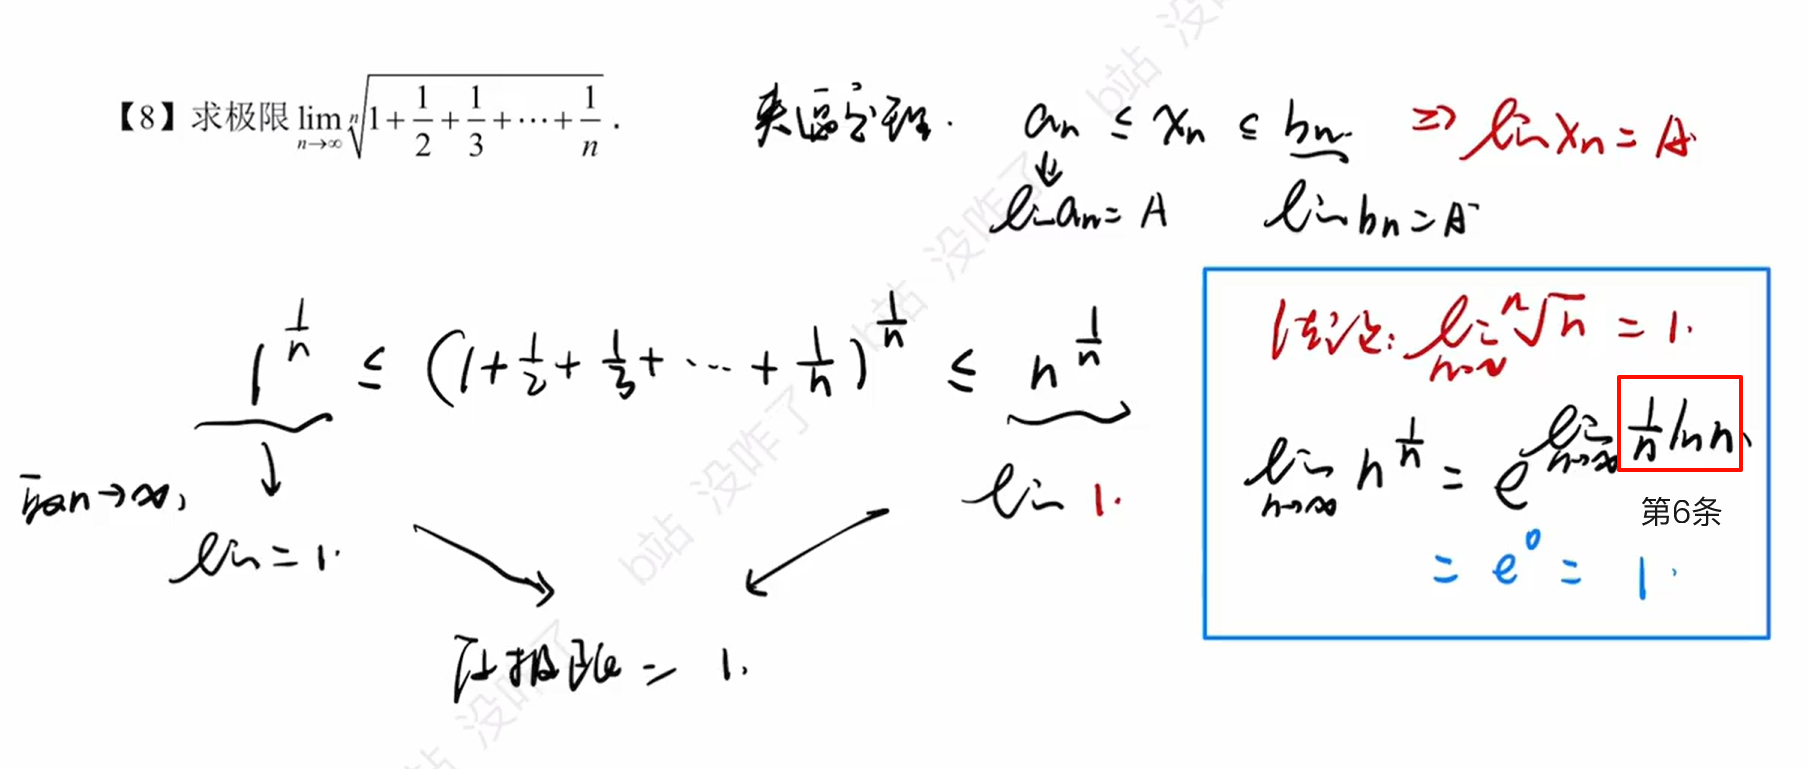 【8】求极限 lim n→∞ ⁿ√(1 + 1/2 + 1/3 + ⋯ + 1/n) .
夹逼定理. aₙ ≤ xₙ ≤ bₙ ⇒ lim xₙ = A.
↓
lim aₙ = A lim bₙ = A
1^(1/n) ≤ (1 + 1/2 + 1/3 + ⋯ + 1/n)^(1/n) ≤ n^(1/n)
n→∞, lim = 1.
lim 1.
原极限 = 1.
结论: lim n→∞ ⁿ√n = 1.
lim n→∞ n^(1/n) = e^(lim n→∞ 1/n ln n)
第6条
= e⁰ = 1.
b站 没咋了
b站 没咋了
b站 没咋了
b站 没
站 没咋了